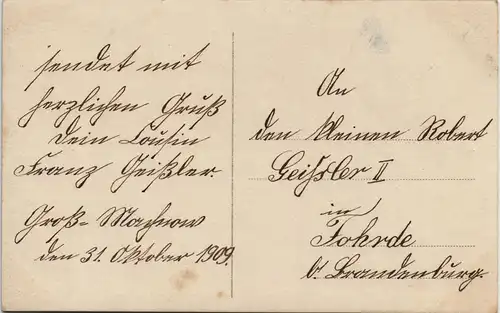 sendet mit
herzlichen Gruß
Dein Cousin
Franz Geißler.
Groß-Machnow
den 31. Oktober 1909.
An
den kleinen Robert
Geißler II
in
Fohrde
b. Brandenburg.